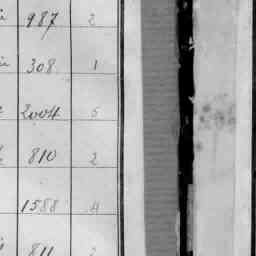 987 2
308 1
2004 5
810 2
1588 4
811 2